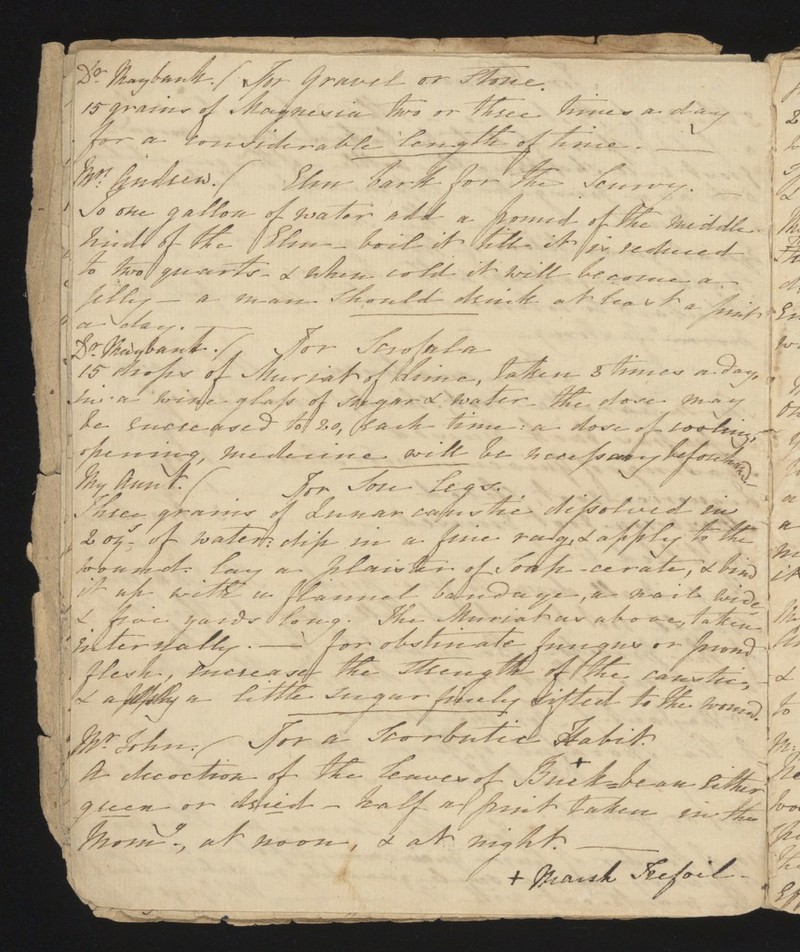 Dr. Maybank. / For Gravel or Stone.
15 grains of Magnesia two or three times a day
for a considerable length of time. —
Mrs. Andrew. / Elm bark for the Scurvy. —
To one gallon of water add a pound of the middle
rind of the Elm – boil it till it is reduced
to two quarts – & when cold it will become a
jilly – a man should drink at least a pint
a day. —
Dr. Maybank. / For Scrofula
15 drops of Muriat of Lime, taken 3 times a day,
in a wine glass of sugar & water the dose may
be encreased to 20, each time: a dose of cooling,
opening, medicine will be necessary beforehand.
My Aunt. / For Sore Legs.
Three grains of Lunar caustic dissolved in
2 ozs. of water: dip in a fine rag, & apply to the
wound: lay a plaister of Soap-cerate, & bind
it up with a flannel bandage, a nail wide
& five yards long. The Muriat as above, taken
internally. — for obstinate fungus or proud
flesh, increase the strength of the caustic,
& apply a little sugar finely sifted to the wound.
Mr. John. / For a Scorbutic Habit.
A decoction of the leaves of + Buck=bean either
green or dried – half a pint taken in the
Morng., at noon, & at night. —
+ Marsh Trefoil –